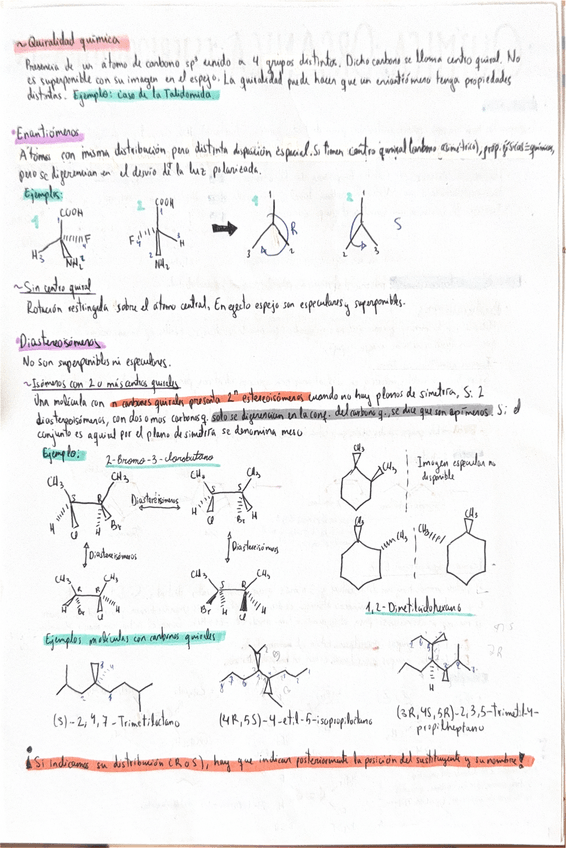 ~Quiralidad química
Presencia de un átomo de carbono sp³ unido a 4 grupos distintos. Dicho carbono se llama centro quiral. No
es superponible con su imagen en el espejo. La quiralidad puede hacer que un enantiómero tenga propiedades
distintas. Ejemplo: caso de la Talidomida.
Enantiómeros
Átomos con misma distribución pero distinta disposición espacial. Si tienen centro quiral (carbono asimétrico), prop. físicas=químicas,
pero se diferencian en el desvío de la luz polarizada.
Ejemplos:
1 2 1 2
COOH COOH 1 1
F F H R S
H₃ NH₂ NH₂ 3 2 2 3
~Sin centro quiral
Rotación restringida sobre el átomo central. En efecto espejo son especulares y superponibles.
Diastereoisómeros
No son superponibles ni especulares.
~Isómeros con 2 o más centros quirales
Una molécula con n carbonos quirales presenta 2ⁿ estereoisómeros cuando no hay planos de simetría. Si 2
diastereoisómeros, con dos o mas carbonos q. solo se diferencian en la conf. del carbono q., se dice que son epímeros. Si el
conjunto es aquiral por el plano de simetría se denomina meso
Ejemplo: 2-Bromo-3-clorobutano
CH₃ CH₃ CH₃ CH₃ CH₃ CH₃ Imagen especular no
S R Diastereoisómeros S S disponible
H Cl H Br Cl Br H
Diastereoisómeros Diastereoisómeros CH₃ CH₃ CH₃ CH₃
CH₃ R R CH₃ CH₃ S R CH₃
H Br Cl H Br H Cl H 1,2-Dimetilciclohexano
Ejemplos moléculas con carbonos quirales
(S)-2,4,7-Trimetiloctano (4R,5S)-4-etil-5-isopropiloctano (3R,4S,5R)-2,3,5-trimetil-4-
propilheptano
¡Si indicamos su distribución (R o S), hay que indicar posteriormente la posición del sustituyente y su nombre!